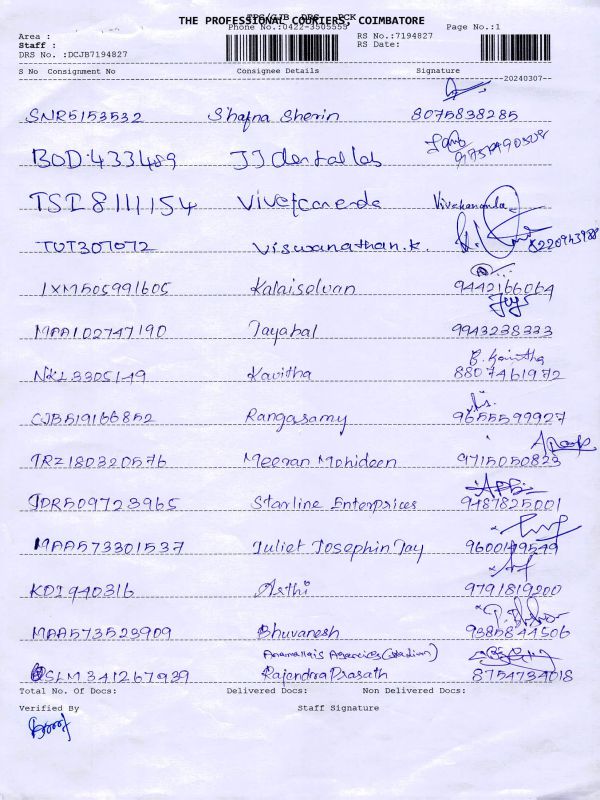 THE PROFESSIONAL COURIERS, COIMBATORE
Phone No.:0422-3505555 Page No.:1
Area : RS No.:7194827
Staff : RS Date:
DRS No. :DCJB7194827
S No Consignment No Consignee Details Signature
20240307
SNR5153532 Shafna Sherin 8075838285
BOD:433489 JJ dental lab
TSI8111154 Vivekananda Vivekananda
TUT307072 Viswanathan.k. 8220943988
IXM505991605 Kalaiselvan 9442166064
MAA102747190 Jayabal 9943238333
NKL3305149 Kavitha 8807461972
CJB519166852 Rangasamy 9655599927
TRZ180320576 Meeran Mohideen 9715050823
IDR509723965 Starline Enterprices 9487825001
MAA573301537 Juliet Josephin Jay 9600149549
KDI940316 Arthi 9791819200
MAA573523909 Bhuvanesh 9385844506
Anamallais Agencies (stadium)
SLM341267939 Rajendra Prasath 8754734018
Total No. Of Docs: Delivered Docs: Non Delivered Docs:
Verified By Staff Signature